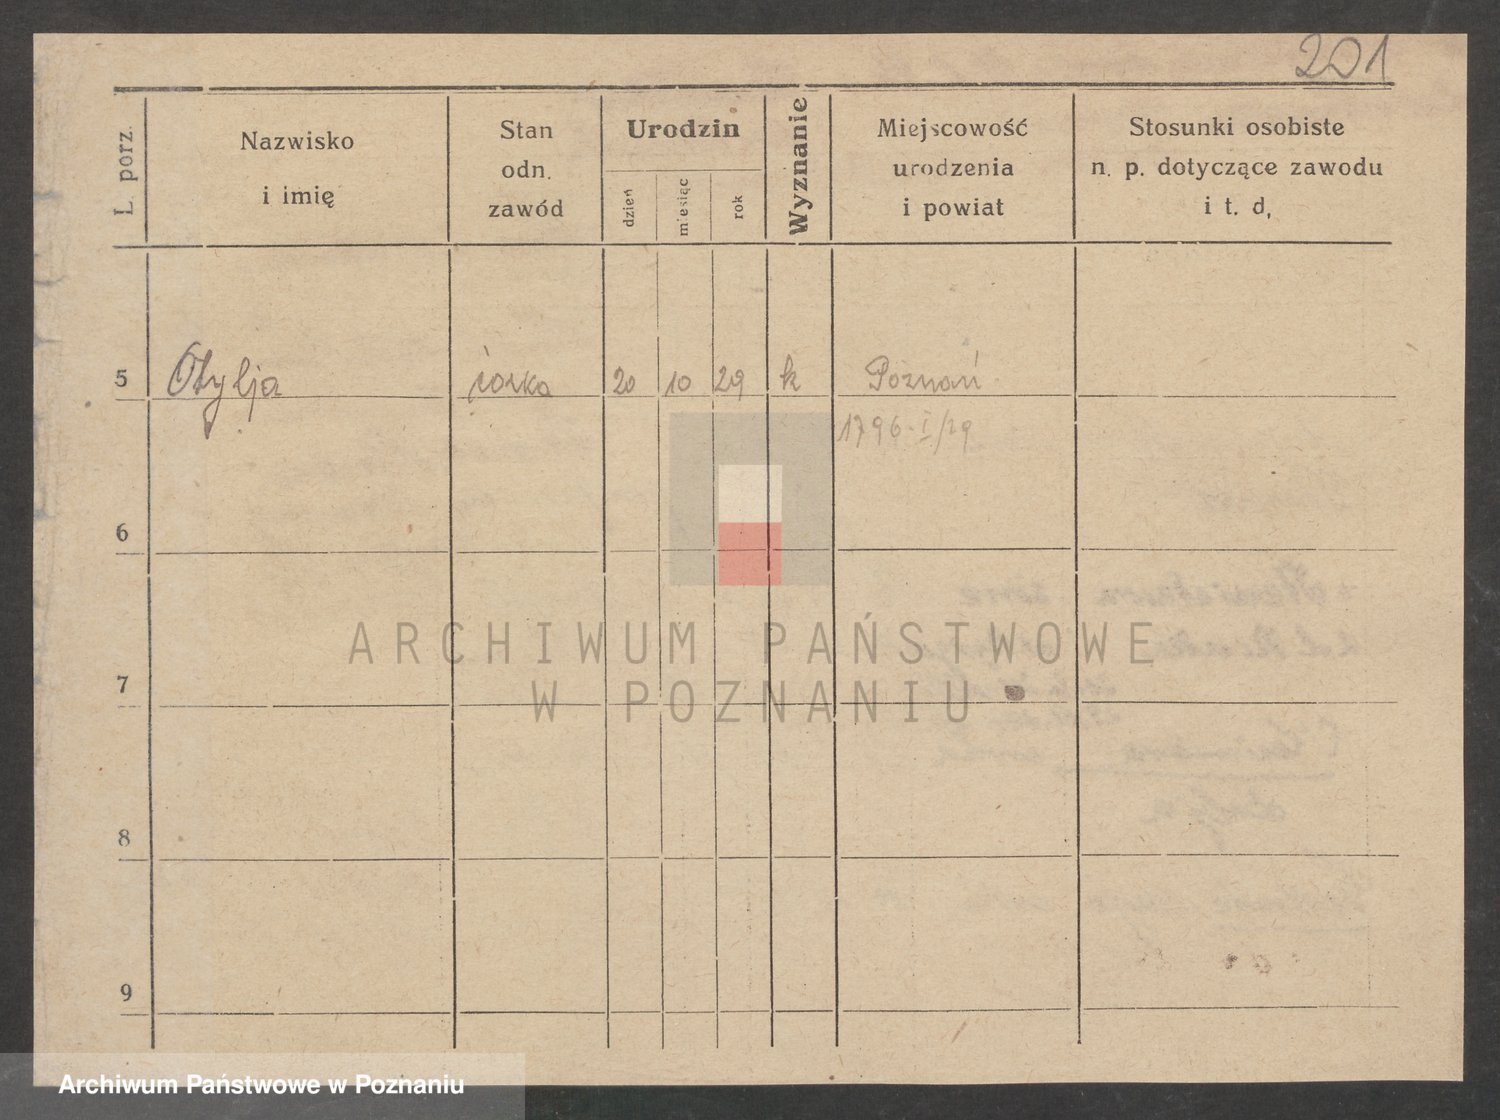 201
L. porz.
Nazwisko
i imię
Stan
odn.
zawód
Urodzin
dzień
miesiąc
rok
Wyznanie
Miejscowość
urodzenia
i powiat
Stosunki osobiste
n. p. dotyczące zawodu
i t. d,
5 Otylja córka 20 10 29 k Poznań
1796·I/29
6
7
8
9
ARCHIWUM PAŃSTWOWE
W POZNANIU
Archiwum Państwowe w Poznaniu